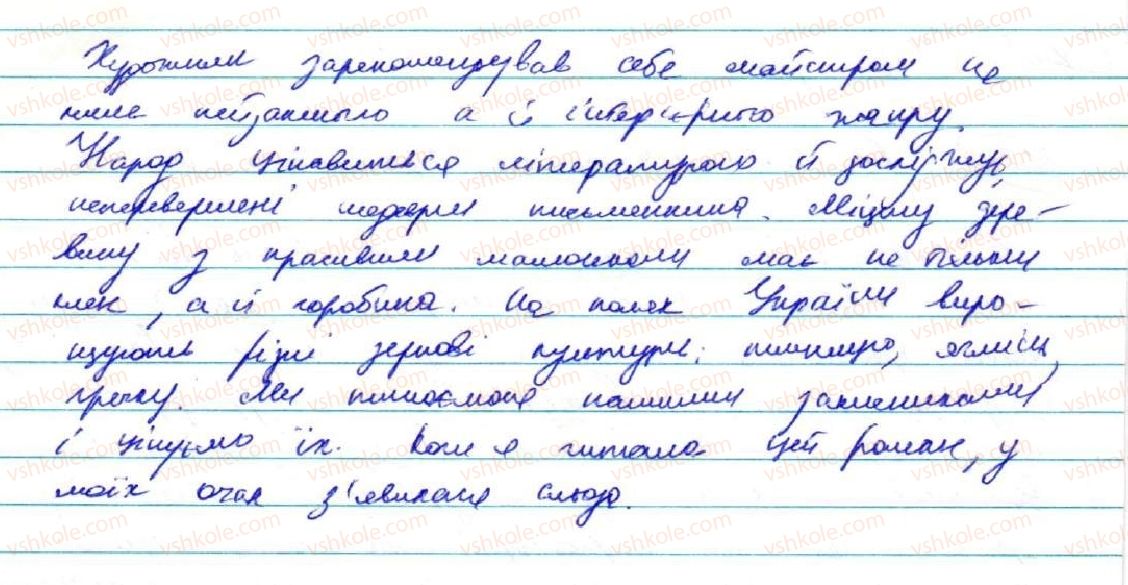 Художник зарекомендував себе майстром не
лише пейзажного а й інтер'єрного жанру.
Народ цікавиться літературою й досліджує
неперевершені шедеври письменника. Міцну дере-
вину з красивим малюнком має не тільки
клен, а й горобина. На полях України виро-
щують різні зернові культури: пшеницю, ячмінь,
гречку. Ми пишаємося нашими захисниками
і цінуємо їх. Коли я читала цей роман, у
моїх очах з'явилася сльоза.